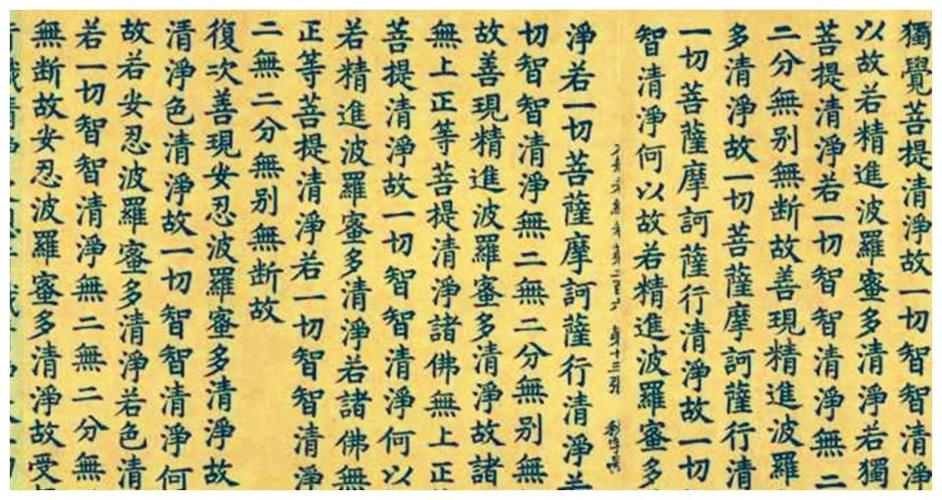 獨覺菩提清淨故一切智智清淨
以故若精進波羅蜜多清淨若獨
菩提清淨若一切智智清淨無二
二分無别無断故善現精進波羅
多清淨故一切菩薩摩訶薩行清
一切菩薩摩訶薩行清淨故一切
智清淨何以故若精進波羅蜜多
第二百六 第十三張
淨若一切菩薩摩訶薩行清淨若
切智智清淨無二無二分無别無
故善現精進波羅蜜多清淨故諸
無上正等菩提清淨諸佛無上正
菩提清淨故一切智智清淨何以
若精進波羅蜜多清淨若諸佛無
正等菩提清淨若一切智智清淨
二無二分無别無断故
復次善現安忍波羅蜜多清淨故
清淨色清淨故一切智智清淨何
故若安忍波羅蜜多清淨若色清
若一切智智清淨無二無二分無
無断故安忍波羅蜜多清淨故受